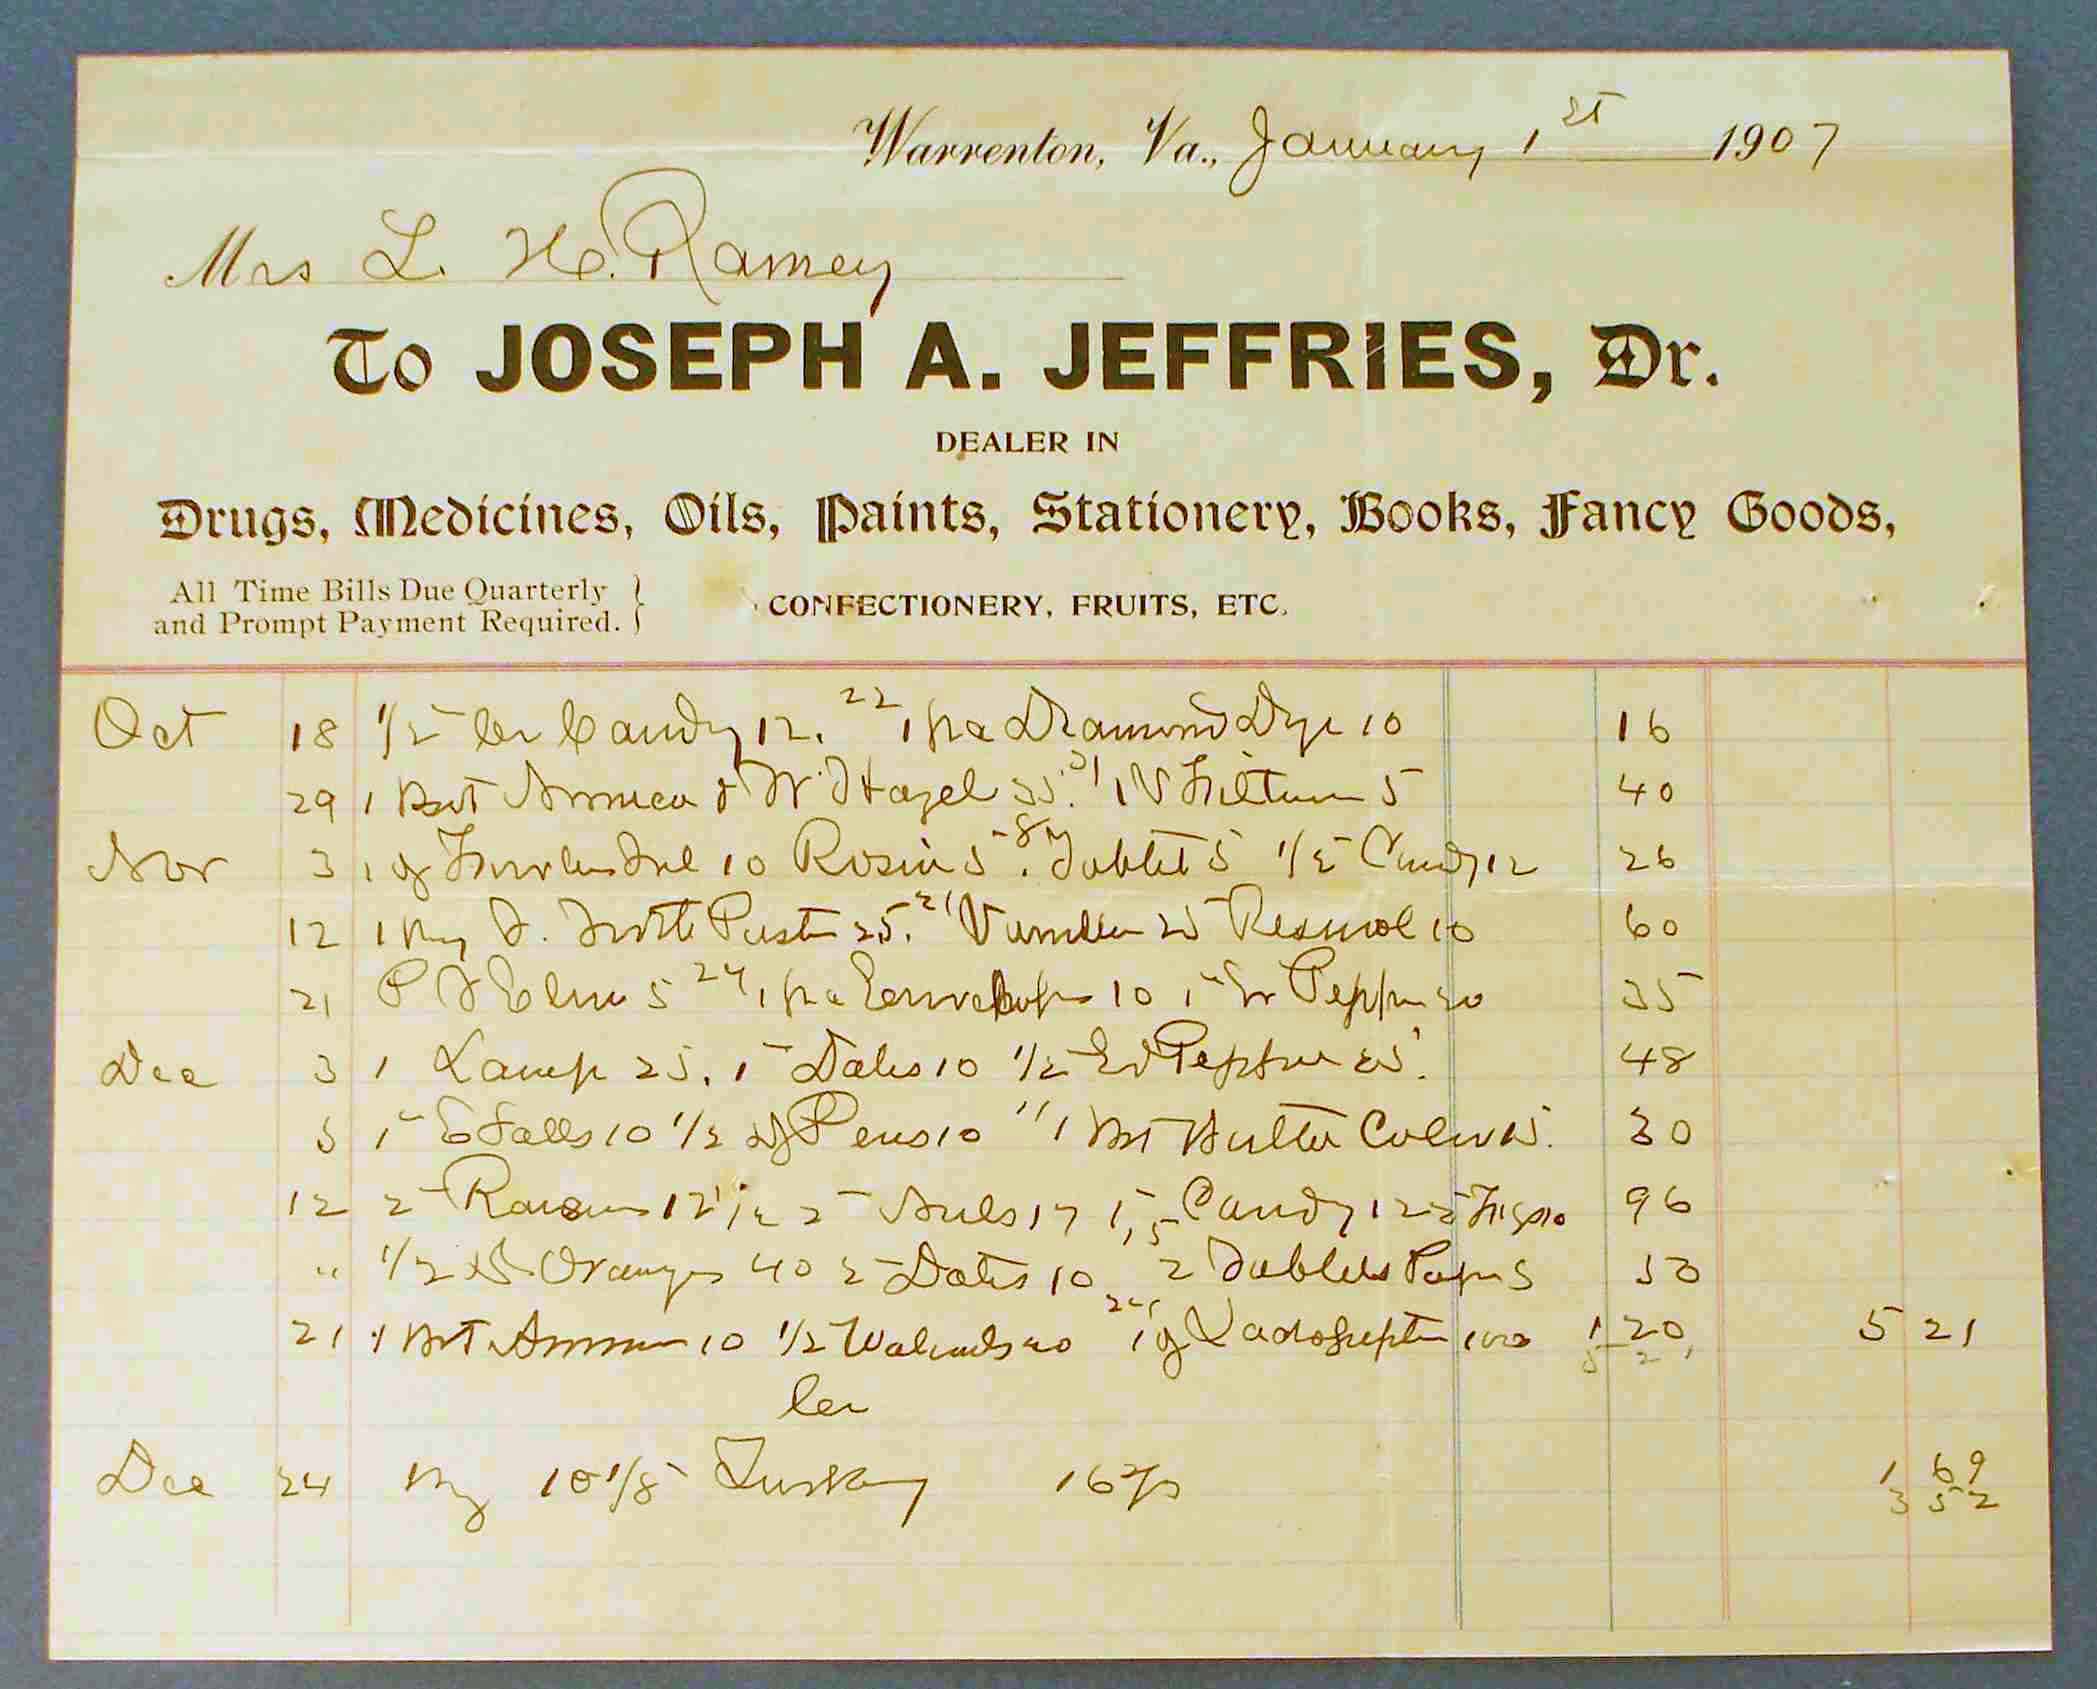 Warrenton, Va., January 1st 1907
Mrs L. H. Ramey
To JOSEPH A. JEFFRIES, Dr.
DEALER IN
Drugs, Medicines, Oils, Paints, Stationery, Books, Fancy Goods,
All Time Bills Due Quarterly
and Prompt Payment Required.
CONFECTIONERY, FRUITS, ETC.
Oct 18 1/2 Candy 12. 22 1 Diamond Dye 10 16
29 1 Bot Arnica & W. Hazel 35. 31 1 5 40
Nov 3 1 10 Rosin 5 Tablet 5 1/2 Candy 12 26
12 1 Paste 25. 21 Resinol 10 60
21 P 5 24 1 Envelopes 10 1 Pepper 35
Dec 3 1 Lamp 25. 1 Dates 10 1/2 48
5 1 E Salts 10 1/2 10 11 1 Bot Butter Color 30
12 2 Raisins 12 1/2 2 17 1 Candy 12 Figs 10 96
" 1/2 D. Oranges 40 2 Dates 10 2 Tablets 5 50
21 1 Bot 10 1/2 Walnuts 1 100 1 20 5 21
Dec 24 By 10 1/8 Turkey 16 2/3 1 69
3 52